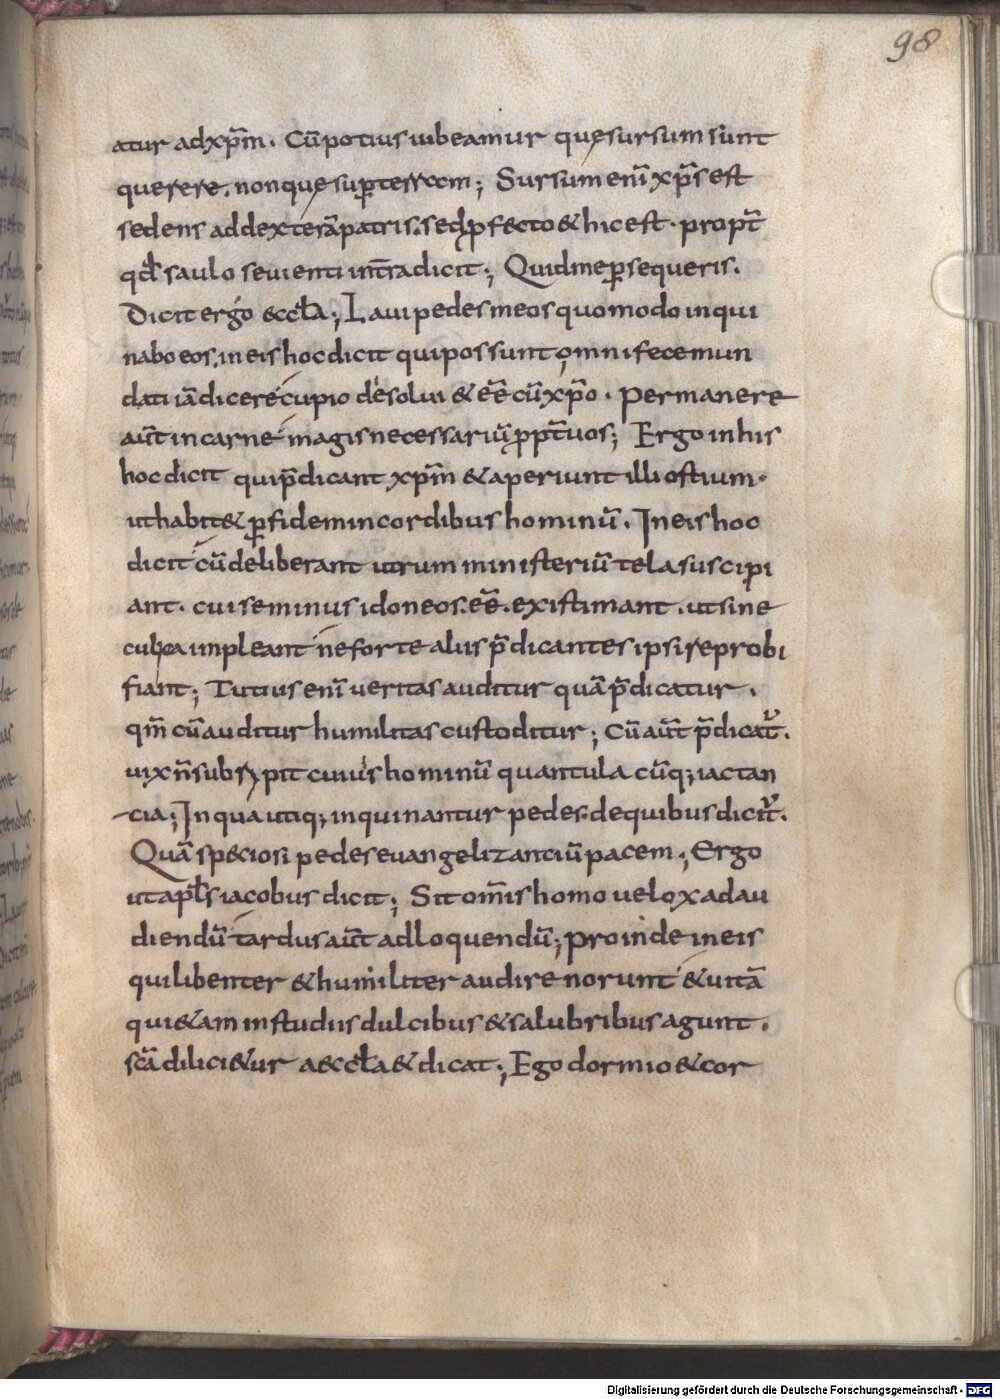 98
atur ad xp̄m. Cū potius iubeamur quę sursum sunt
querere. non quę sup̱ terram; Sursum enī xp̄s est
sedens ad dexterā patris. sed ꝓfecto & hic est. propt̄
qđ saulo seuienti int̄ra dicit; Quid me ꝑsequeris.
Dicit ergo ęccła; Laui pedes meos quomodo inqui
nabo eos. in eis hoc dicit qui possunt omni fece mun
dati iā dicere cupio desolui & eē cū xp̄o. Permanere
aūt in carne magis necessariū ꝓpt̄ uos; Ergo in his
hoc dicit qui p̄dicant xp̄m & aperiunt illi ostium.
ut habit& ꝑ fidem in cordibus hominū. In eis hoc
dicit cū deliberant utrum ministeriū tela suscipi
ant. cui se minus idoneos. eē. existimant. ut sine
culpa impleant ne forte aliis p̄dicantes ipsi reprobi
fiant; Tutius enī ueritas auditur quā p̄dicatur.
qm̄ cū auditur humilitas custoditur; Cū aūt p̄dicat̄.
uix n̄ subrepit cuius hominū quantulacūq; iactan
cia; In qua utiq; inquinantur pedes. de quibus dicit̄.
Quā speciosi pedes euangelizantiū pacem; Ergo
ut apłs iacobus dicit; Sit om̄is homo uelox ad au
diendū tardus aūt ad loquendū; proinde in eis
qui libenter & humiliter audire norunt & uitā
qui&am in studiis dulcibus & salubribus agunt.
sc̄a dilici&ur aęccła & dicat; Ego dormio & cor
Digitalisierung gefördert durch die Deutsche Forschungsgemeinschaft - DFG